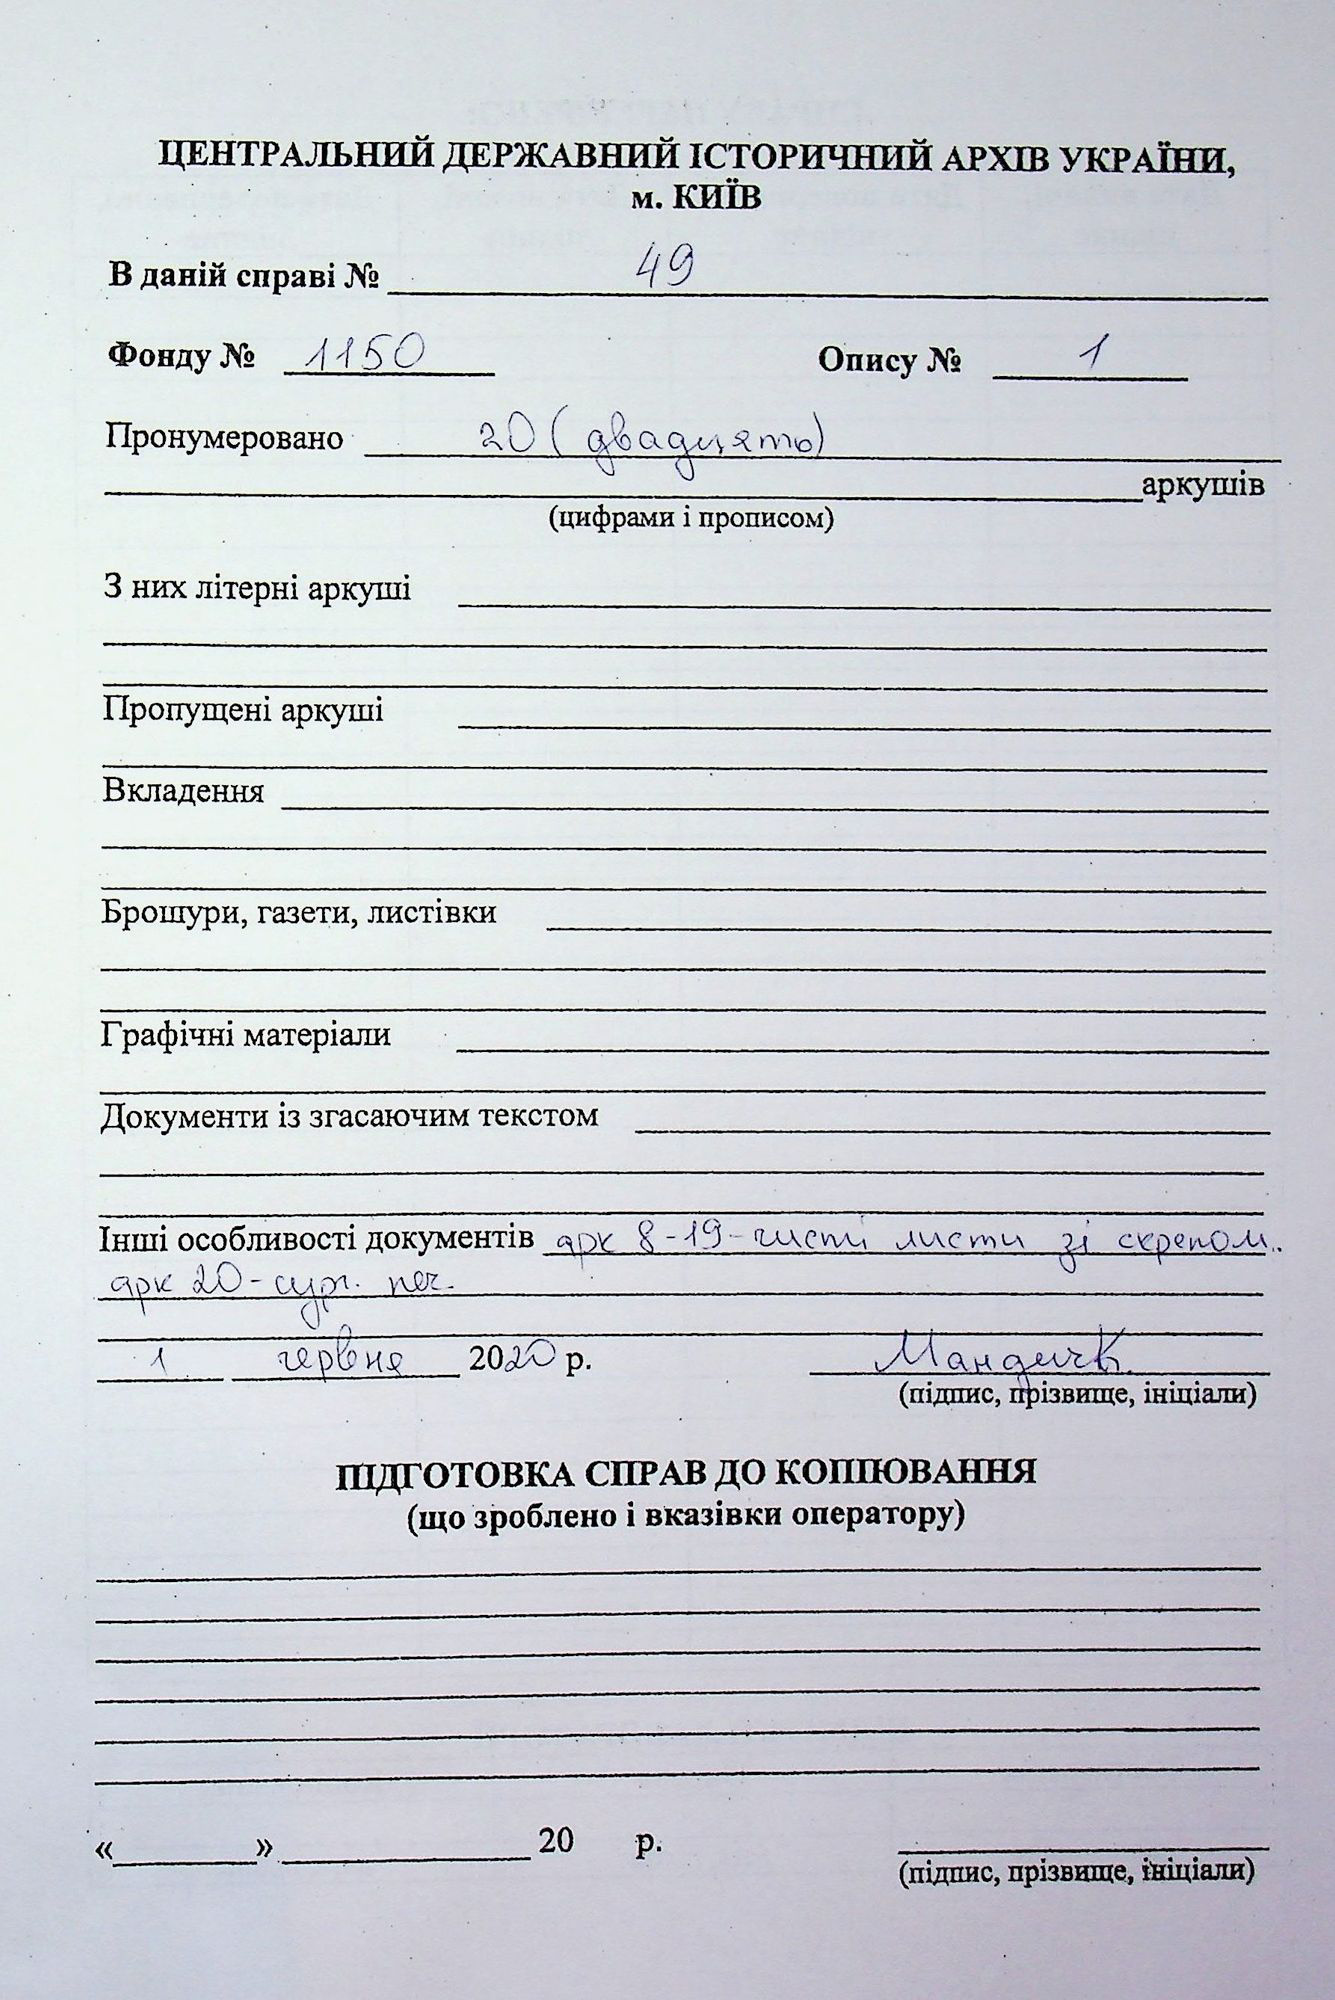 ЦЕНТРАЛЬНИЙ ДЕРЖАВНИЙ ІСТОРИЧНИЙ АРХІВ УКРАЇНИ,
м. КИЇВ
В даній справі № 49
Фонду № 1150 Опису № 1
Пронумеровано 20 (двадцять)
аркушів
(цифрами і прописом)
З них літерні аркуші
Пропущені аркуші
Вкладення
Брошури, газети, листівки
Графічні матеріали
Документи із згасаючим текстом
Інші особливості документів арк 8-19-чисті листи зі скрепом.
арк 20 - сург. печ.
1 червня 2020 р. Мандич
(підпис, прізвище, ініціали)
ПІДГОТОВКА СПРАВ ДО КОПІЮВАННЯ
(що зроблено і вказівки оператору)
«    » 20    р.
(підпис, прізвище, ініціали)